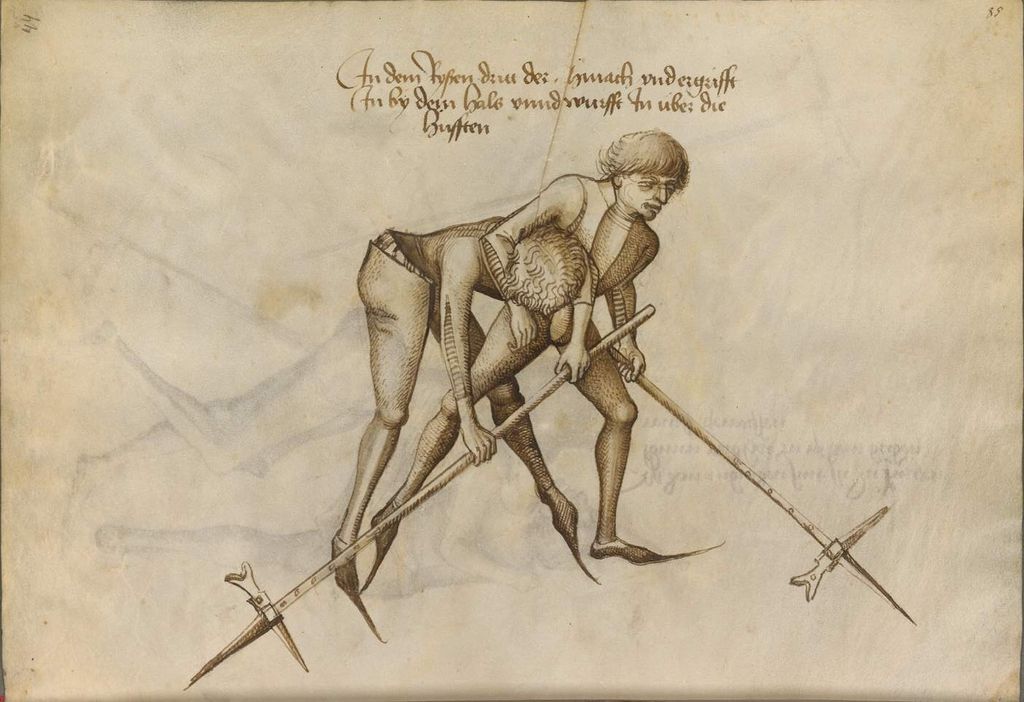 44
85
In dem Ryßen dritt der . hinach vnd ergrifft
In by dem hals vnnd wurfft In uber die
Hufften